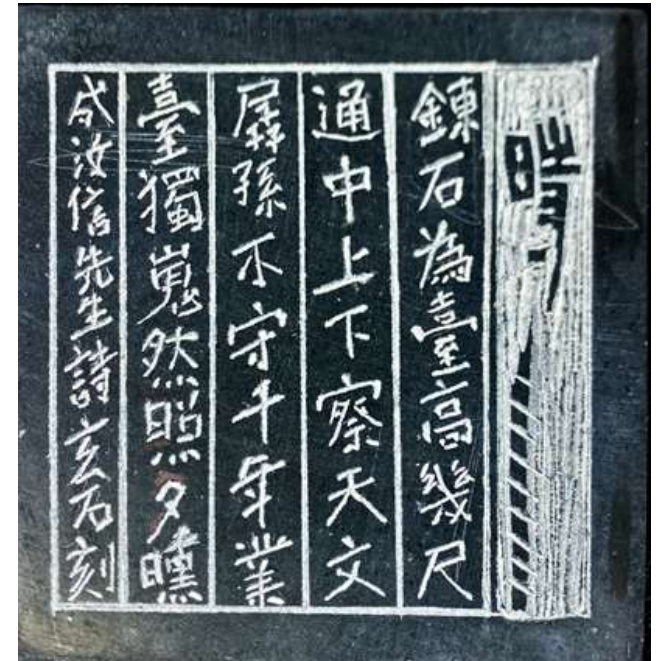 鍊石為臺高幾尺
通中上下察天文
孱孫不守千年業
臺獨嵬然照夕曛
成汝信先生詩玄石刻